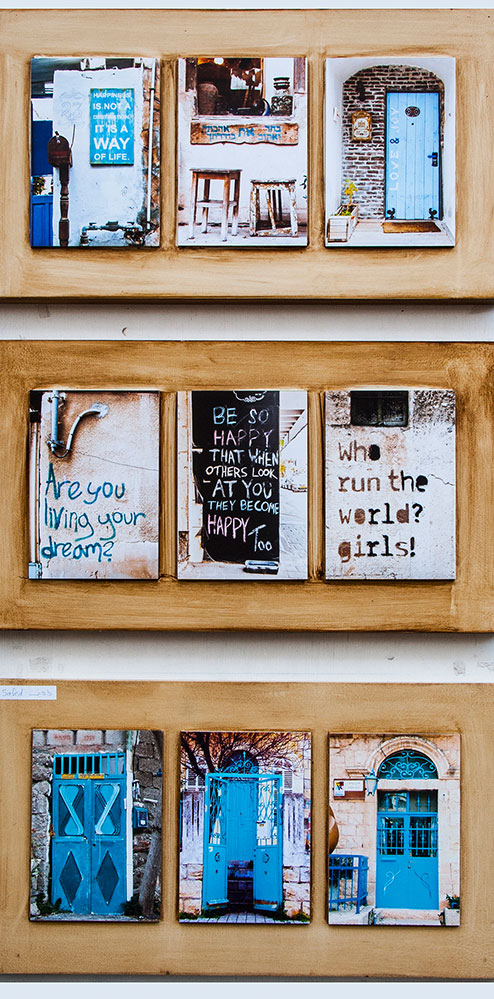 HAPPINESS
IS NOT A
DESTINATION
IT IS A
WAY
OF LIFE.
LOVE & JOY
Are you
living your
dream?
BE SO
HAPPY
THAT WHEN
OTHERS LOOK
AT YOU
THEY BECOME
HAPPY TOO
Who
run the
world?
girls!
Safed צפת